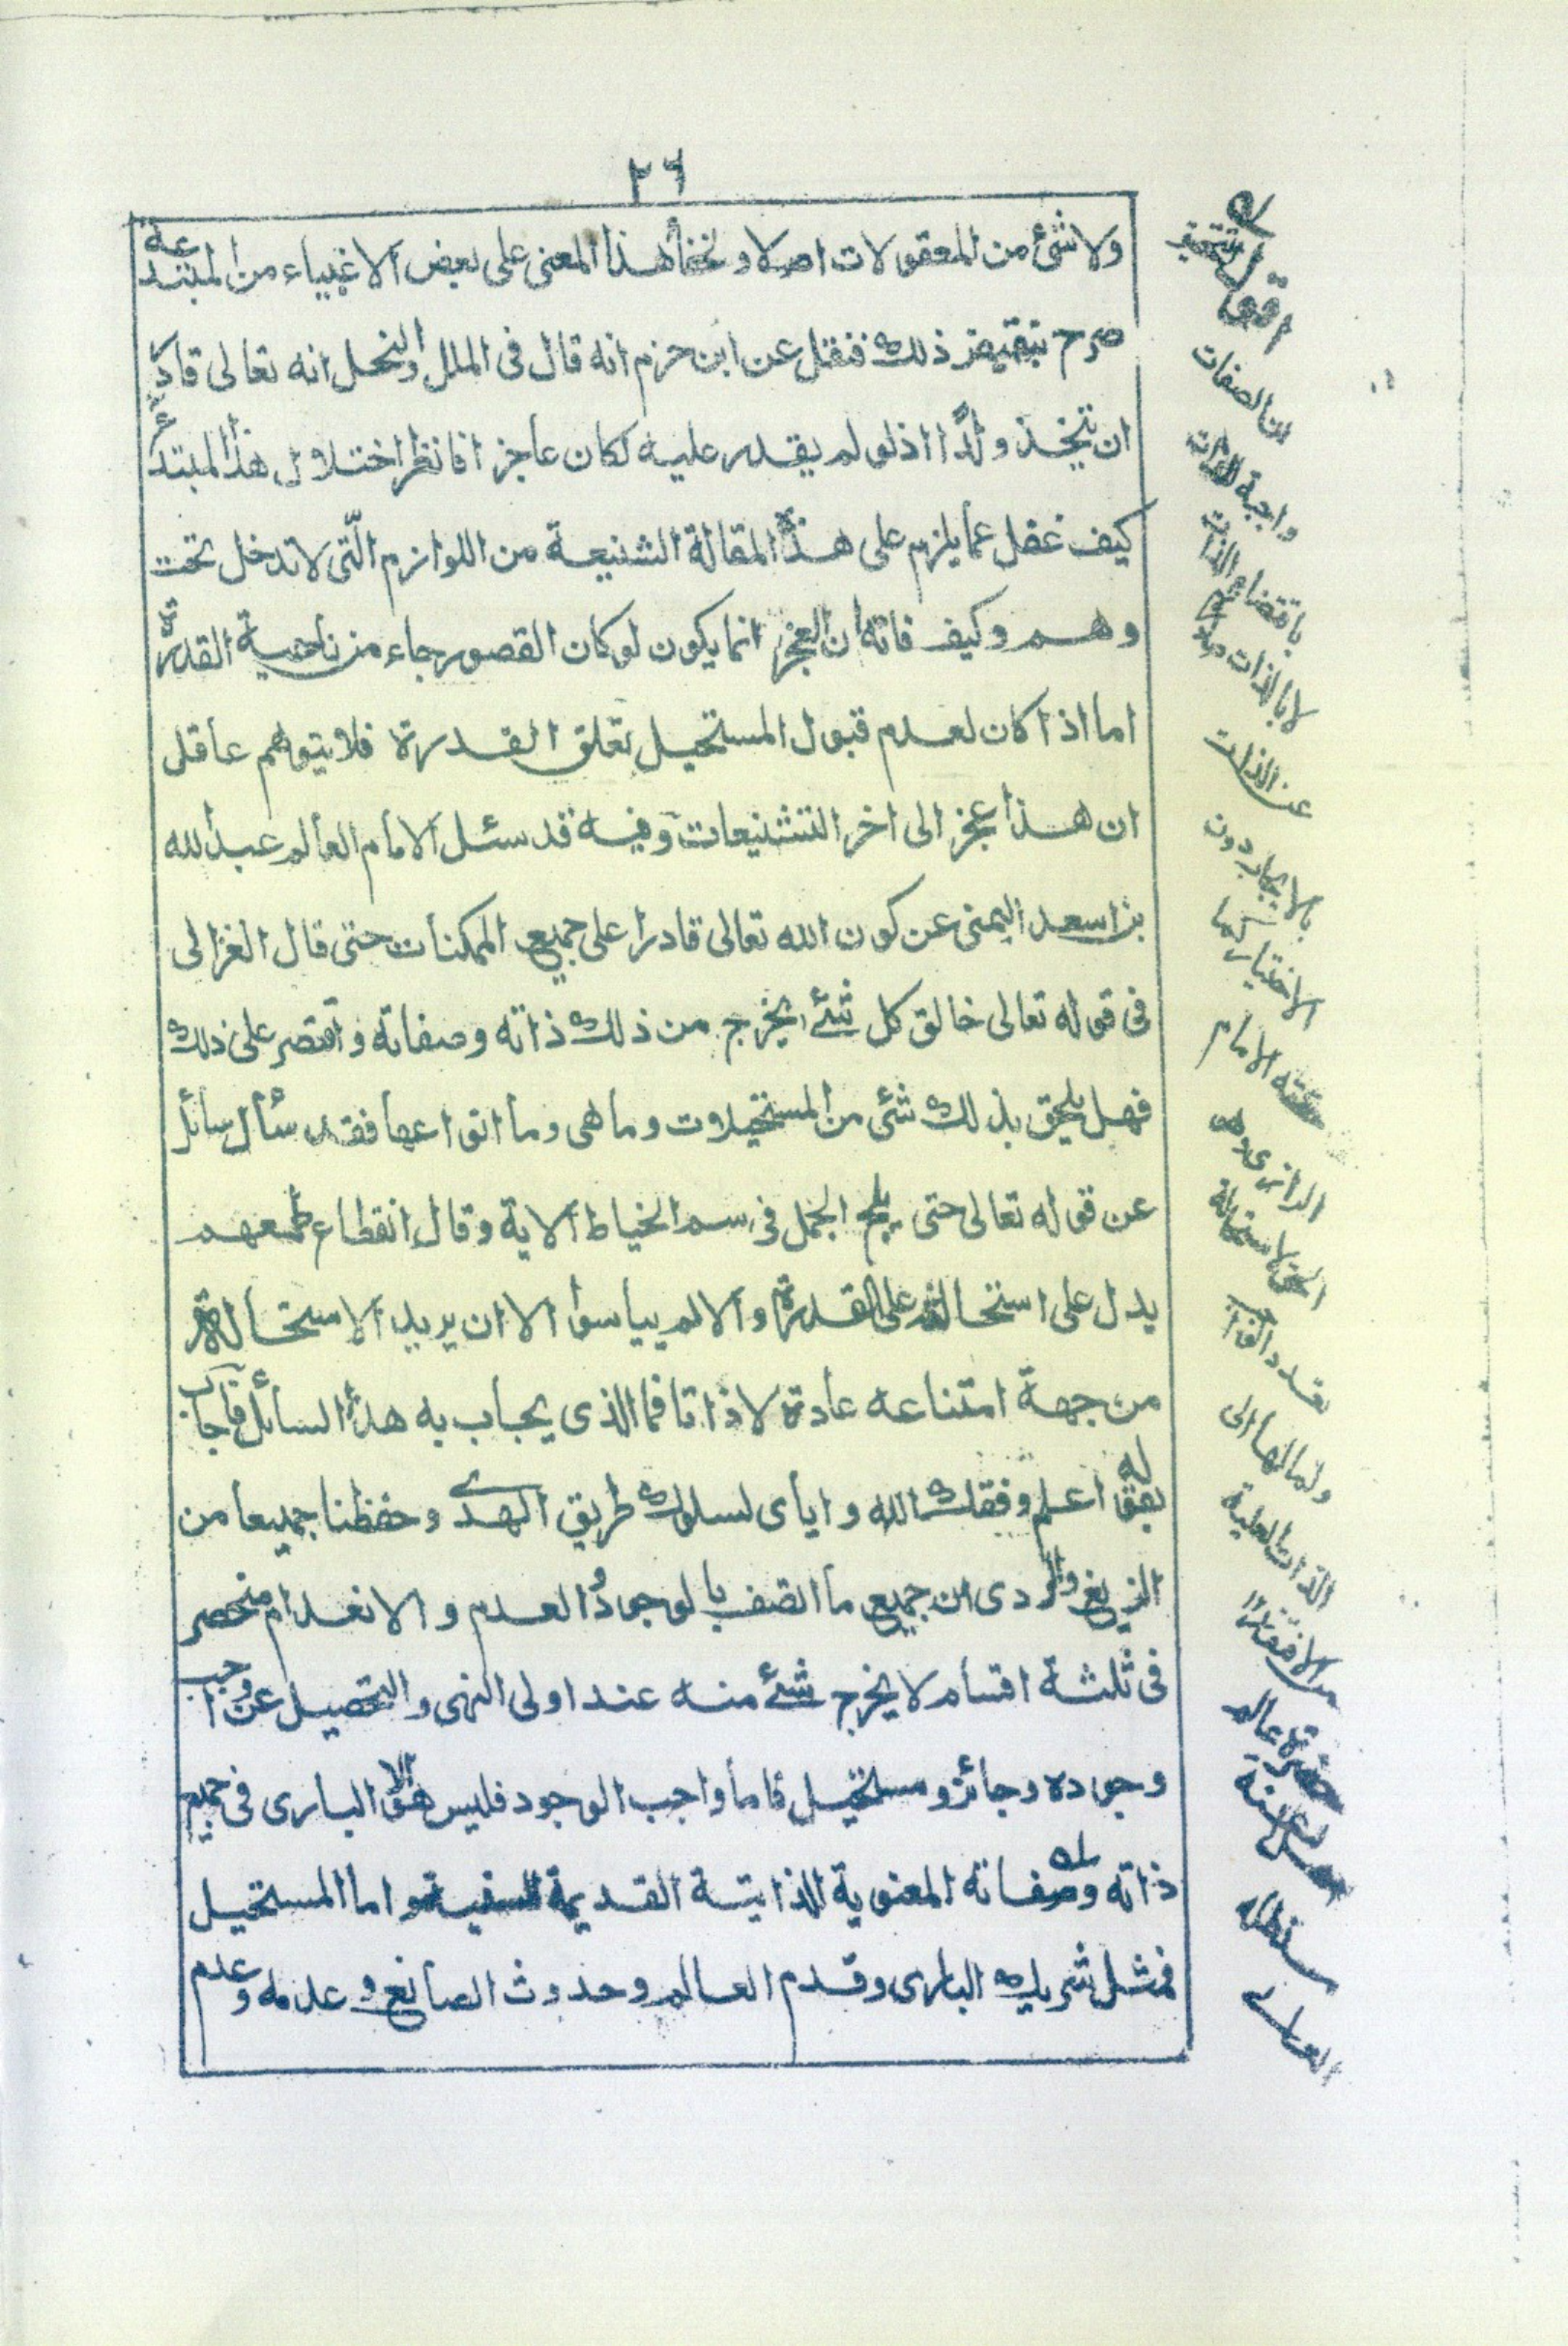 ٢٦
ولا شئ من المعقولات اصلا و لخفأ هذا المعنى على بعض الاغبياء من المبتدعة
صرح بنقيض ذلك فنقل عن ابن حزم انه قال فى الملل والنحل انه تعالى قادر
ان يتخذ ولدًا اذ لو لم يقدر عليه لكان عاجزا فانظر اختلال هذا المبتدع
كيف غفل عما يلزم على هذه المقالة الشنيعة من اللوازم الّتى لا تدخل تحت
وهم وكيف فاته ان العجز انما يكون لو كان القصور جاء من ناحية القدرة
اما اذا كان لعدم قبول المستحيل تعلق القدرة فلا يتوهم عاقل
ان هذا عجز الى اخر التشنيعات وفيه قد سئل الامام العالم عبد الله
بن اسعد اليمنى عن كون الله تعالى قادرا على جميع الممكنات حتى قال الغزالى
فى قوله تعالى خالق كل شئ يخرج من ذلك ذاته وصفاته واقتصر على ذلك
فهل يلحق بذلك شئ من المستحيلات وما هى وما انواعها فقد سأل سائل
عن قوله تعالى حتى يلج الجمل فى سم الخياط الاية وقال انقطاع طمعهم
يدل على استحالته على القدرة والا لم ييأسوا الا ان يريد الاستحالة
من جهة امتناعه عادة لا ذاتا فما الذى يجاب به هذا السائل فاجاب
بقوله اعلم وفقك الله واياى لسلوك طريق الهدى وحفظنا جميعا من
الزيغ والردى ان جميع ما اتصف بالوجود والعدم والانعدام منحصر
فى ثلثة اقسام لا يخرج شئ منه عند اولى النهى والتحصيل عن واجب
وجوده وجائز ومستحيل فاما واجب الوجود فليس هو الا البارى فى جميع
ذاته وصفاته المعنوية الذاتية القديمة السنية واما المستحيل
فمثل شريك البارى وقدم العالم وحدوث الصانع وعدمه وعدم
اقول
ان الصفات
واجبة للذات
باقتضاء الذات
لا بالذات
عن الذات
بالايجاب دون
الاختيار كما
حققه الامام
الرازى وهو
الحق لاستحالة
تعدد الواجب
ولمالها الى
الذات العلية